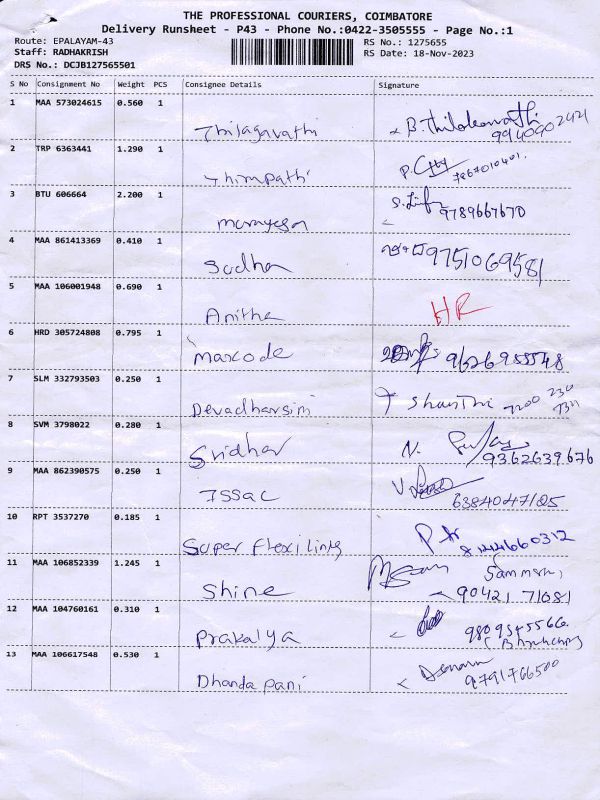 THE PROFESSIONAL COURIERS, COIMBATORE
Delivery Runsheet - P43 - Phone No.:0422-3505555 - Page No.:1
Route: EPALAYAM-43 RS No.: 1275655
Staff: RADHAKRISH RS Date: 18-Nov-2023
DRS No.: DCJB127565501
S No Consignment No Weight PCS Consignee Details Signature
1 MAA 573024615 0.560 1
Thilagavathi B. Thilakavathi
2 TRP 6363441 1.290 1
Thirupathi P. 7867010401.
3 BTU 606664 2.200 1
murugesan S. 9789667670
4 MAA 861413369 0.410 1
Sudha 9751069581
5 MAA 106001948 0.690 1
Anitha HR
6 HRD 305724808 0.795 1
marcode 9626955548
7 SLM 332793503 0.250 1
Devadharsini T Shanthi 7200 230
8 SVM 3798022 0.280 1
Sridhar N. 9362639676
9 MAA 862390575 0.250 1
Issac V 6384047125
10 RPT 3537270 0.185 1
Super flexilinks P 8144660312
11 MAA 106852339 1.245 1
Shine 90421 71681
12 MAA 104760161 0.310 1
Prakalya 9809545566
13 MAA 106617548 0.530 1
Dhandapani 9791766500